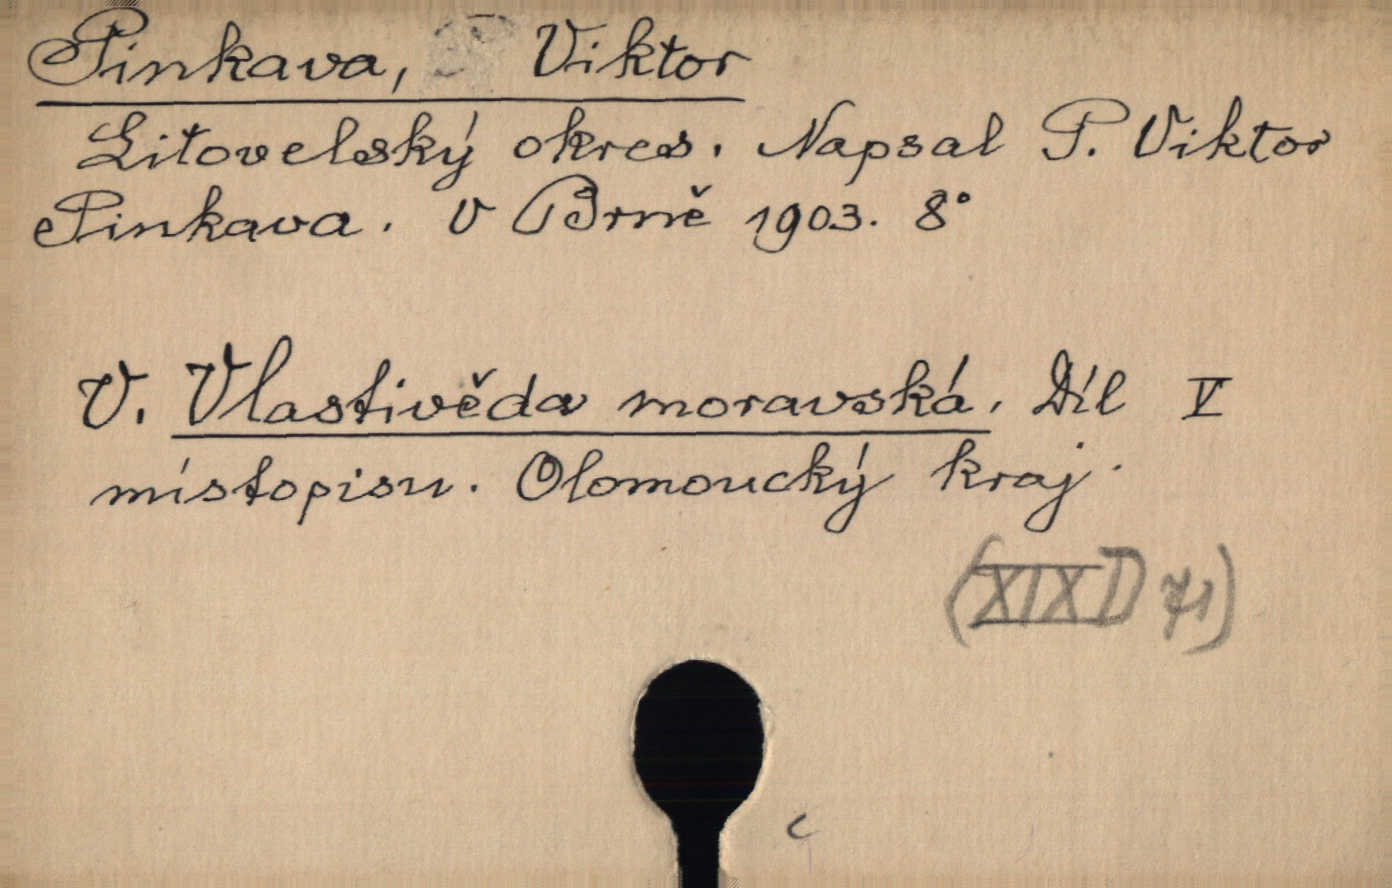 Pinkava, Viktor
Litovelský okres. Napsal P. Viktor
Pinkava. V Brně 1903. 8°
V. Vlastivěda moravská. Díl V
místopisu. Olomoucký kraj.
(XIX D 71)
c